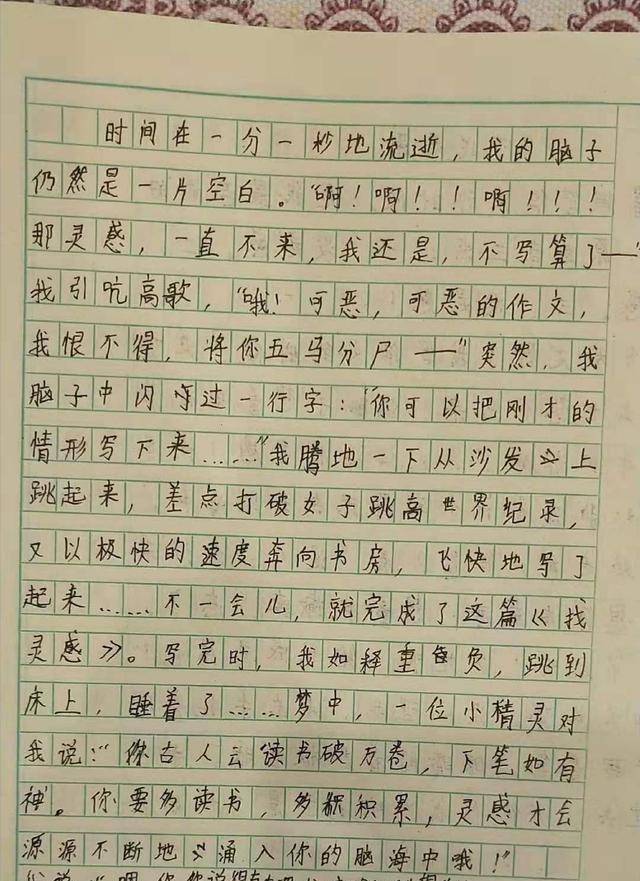 时间在一分一秒地流逝，我的脑子
仍然是一片空白。“啊！啊！！啊！！！
那灵感，一直不来，我还是，不写算了——”
我引吭高歌，“哦！可恶，可恶的作文，
我恨不得，将你五马分尸——”突然，我
脑子中闪过一行字：“你可以把刚才的
情形写下来……”我腾地一下从沙发上
跳起来，差点打破女子跳高世界纪录，
又以极快的速度奔向书房，飞快地写了
起来……不一会儿，就完成了这篇《找
灵感》。写完时，我如释重负，跳到
床上，睡着了……梦中，一位小精灵对
我说：“古人云读书破万卷，下笔如有
神。你要多读书，多积累，灵感才会
源源不断地涌入你的脑海中哦！”